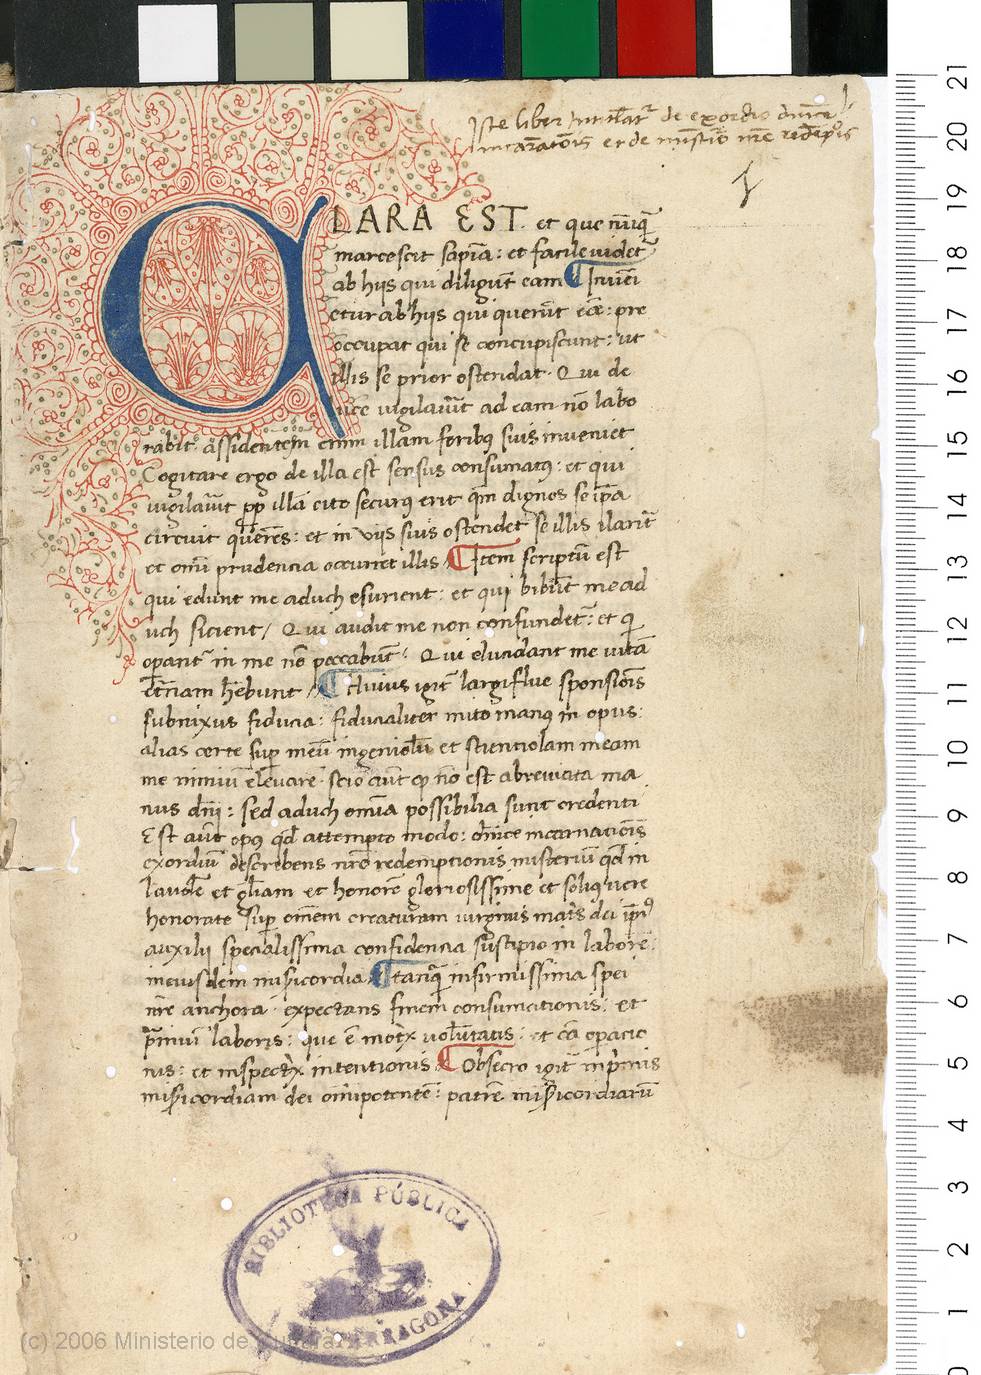 Iste liber intitulat̃ de exordio diuine
incarnatõis et de misterio nr̃e redẽptõis
1
CLARA EST. et que nũq̃
marcescit sapiã: et facile uidet̃
ab hijs qui diligũt eam ¶ Inueni
etur ab hijs qui querũt eã: pre
occupat qui se concupiscunt: ut
illis se prior ostendat. Qui de
luce uigilauĩt ad eam nõ labo
rabit. assidentem enim illam foribꝯ suis inueniet
Cogitare ergo de illa est sensus consumatꝯ: et qui
uigilauĩt ꝓp̃ illã cito securꝯ erit qm̃ dignos se ip̃a
circuit querẽs: et in vijs suis ostendet se illis ilarit̃
et omĩ prudencia occurret illis. ¶ Item scriptũ est
qui edunt me aduch esurient: et qui bibũt me ad
uch sicient / Qui audit me non confundet̃: et q̃
operant̃ in me nõ peccabũt: Qui elucidant me uitã
et̃nam h̃ebunt / ¶ Huius igit̃ largiflue sponsiõis
subnixus fiducia: fiducialiter mito manꝯ in opus:
alias certe sup̃ meũ ingeniolũ et scienciolam meam
me nimiũ eleuare. scio aũt ꝙ nõ est abreuiata ma
nus dñi: sed aduch omĩa possibilia sunt credenti
Est aũt opꝯ qd̃ attempto modo: dñice incarnaciõis
exordiũ describens nr̃e redemptionis misteriũ qd̃ in
laudẽ et gl̃iam et honorẽ gloriosissime et
honorate sup̃ omẽm creaturam uirginis mat̃s dei ip̃iꝯ
auxilij specialissima confidencia suscipio in labore:
in eiusdem misericordia. ¶ tanq̃ infirmissima spei
mr̃e anchora expectans finem consumationis: et
p̃miũ laboris: que ẽ mot̃x uolũtatis: et cã
nis: et inspect̃x intentionis. ¶ Obsecro igit̃ inp̃mis
misericordiam dei oĩpotentẽ: patrẽ misericordiarũ
BIBLIOTECA PÚBLICA
TARRAGONA
(c) 2006 Ministerio de Cultura
21
20
19
18
17
16
15
14
13
12
11
10
9
8
7
6
5
4
3
2
1
0